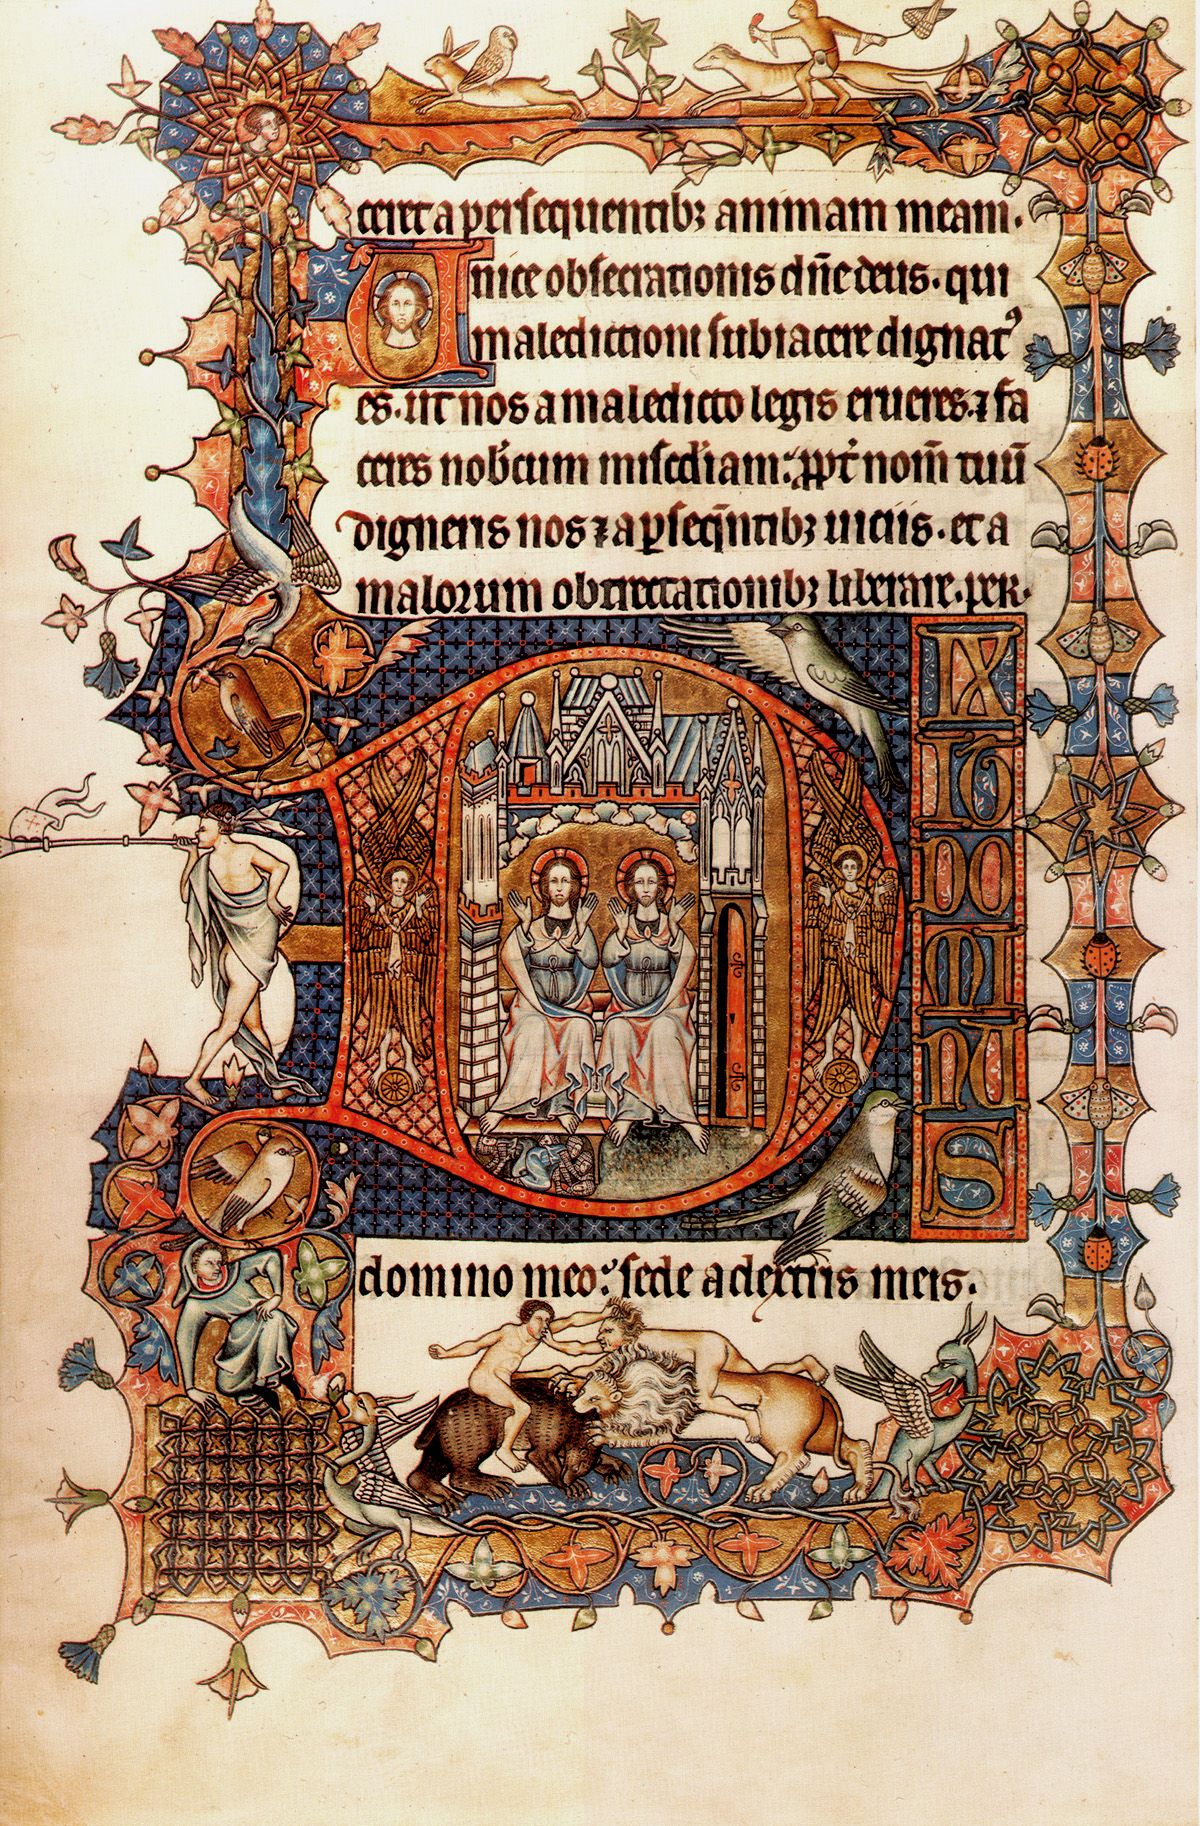 ceret a persequentibꝫ animam meam.
Unice obsecrationis dn̄e deus. qui
maledictioni subiacere dignatꝰ
es. ut nos a maledicto legis erueres. ⁊ fa
ceres nob̾cum misc̄diam: ꝓpt̾ nom̄ tuū
digneris nos ⁊ a ꝑseq̄ntibꝫ uiciis. et a
malorum obtrectationibꝫ liberare. per.
DIX
IT
DO
MI
NU
S
domino meo: sede a dextris meis.